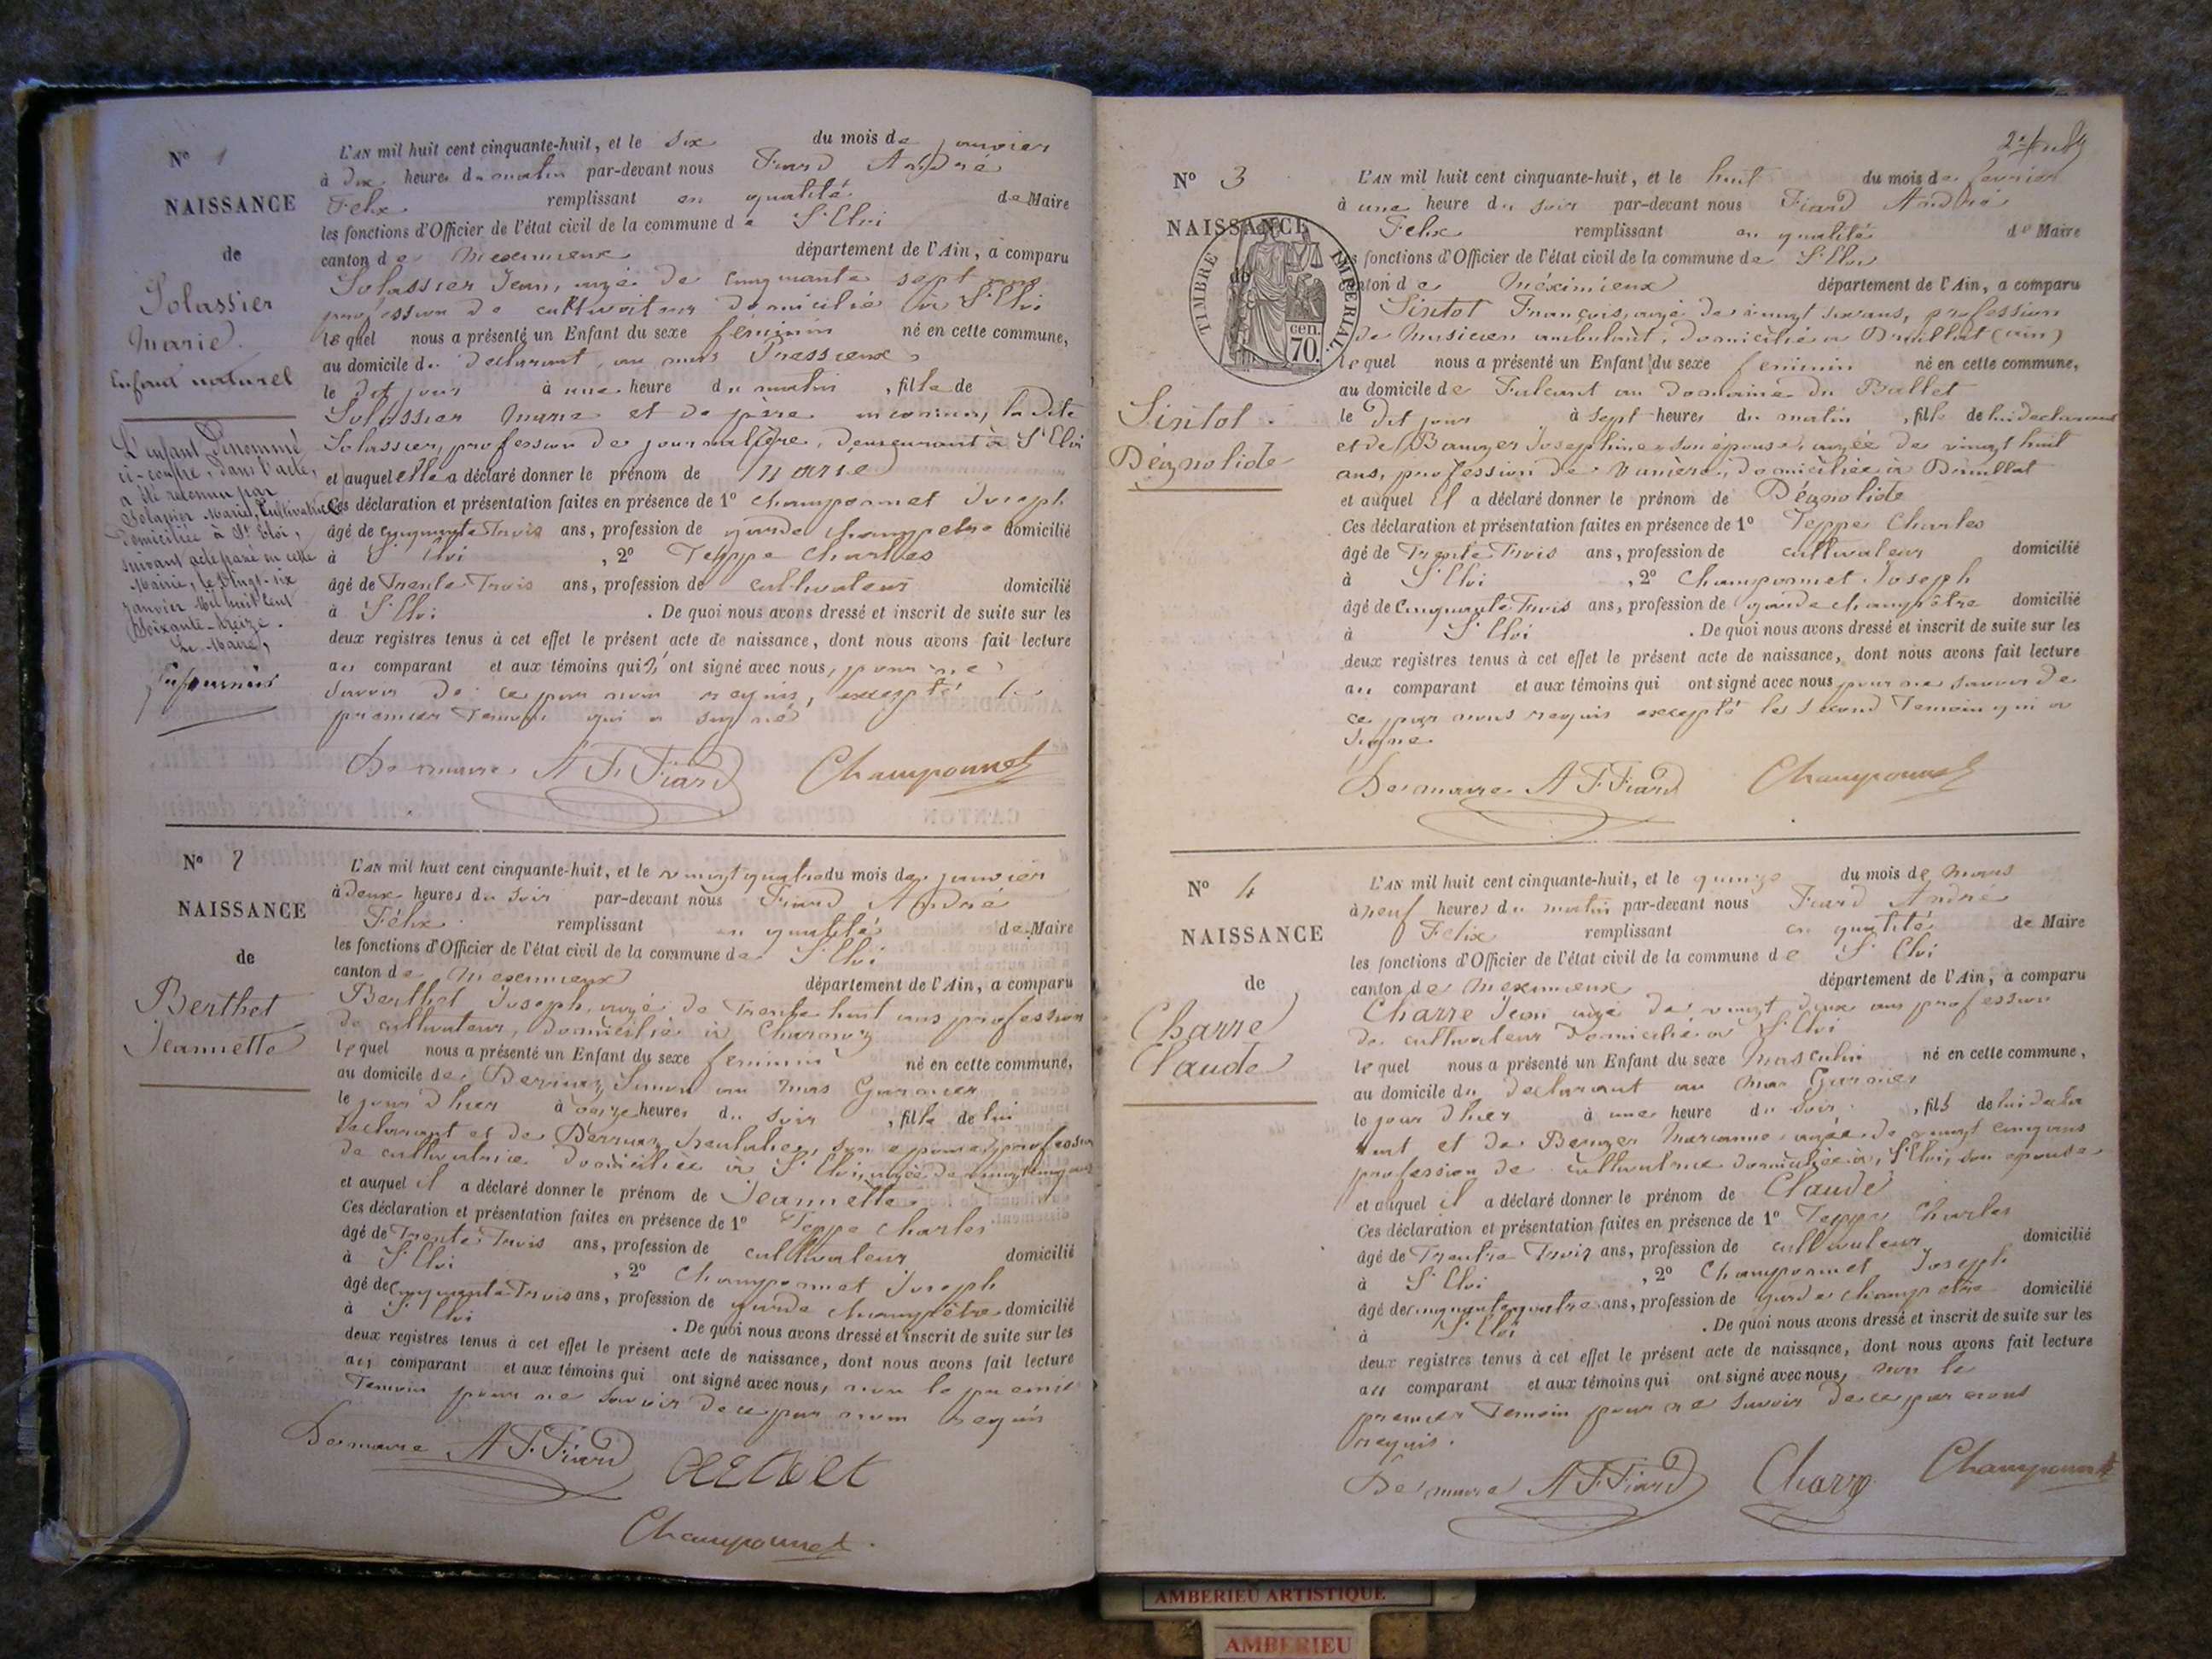 Nº 1
NAISSANCE
de
Solassier
Marie
Enfant naturel
L'enfant dénommé
ci-contre, dans l'acte,
a été reconnu par
Solassier Marie, cultivatrice
domiciliée à St Eloi,
suivant acte passé en cette
Mairie, le vingt-six
janvier mil huit cent
soixante-treize.
Le Maire,
L'AN mil huit cent cinquante-huit, et le six du mois de janvier
à dix heures du matin par-devant nous Fiard André
Felix remplissant en qualité de Maire
les fonctions d'Officier de l'état civil de la commune de St Eloi
canton de Meximieux département de l'Ain, a comparu
Solassier Jean, agé de cinquante sept ans
profession de cultivateur domicilié à St Eloi
lequel nous a présenté un Enfant du sexe féminin né en cette commune,
au domicile du declarant, au mas Pressieux
le dit jour à une heure du matin, fille de
Solassier Marie et de père inconnu, la dite
Solassier, profession de journalière, demeurant à St Eloi
et auquel elle a déclaré donner le prénom de Marie
Ces déclaration et présentation faites en présence de 1º Champonnet Joseph
âgé de cinquante trois ans, profession de garde champetre domicilié
à St Eloi, 2º Teppe Charles
âgé de trente trois ans, profession de cultivateur domicilié
à St Eloi. De quoi nous avons dressé et inscrit de suite sur les
deux registres tenus à cet effet le présent acte de naissance, dont nous avons fait lecture
au comparant et aux témoins qui n'ont signé avec nous, pour ne
savoir de ce par nous requis, excepté le
premier temoin qui a signé
Le maire A F Fiard Champonnet
Nº 2
NAISSANCE
de
Berthet
Jeannette
L'AN mil huit cent cinquante-huit, et le vingt quatre du mois de janvier
à deux heures du soir par-devant nous Fiard André
Félix remplissant en qualité de Maire
les fonctions d'Officier de l'état civil de la commune de St Eloi
canton de Meximieux département de l'Ain, a comparu
Berthet Joseph, agé de trente huit ans profession
de cultivateur, domicilié à Charnoz
lequel nous a présenté un Enfant du sexe feminin né en cette commune,
au domicile de Simon au mas Garnier
le jour d'hier à onze heures du soir, fille de lui
declarant et de son epouse, profession
de cultivatrice domiciliée à St Eloi, agée de vingt cinq ans
et auquel il a déclaré donner le prénom de Jeannette.
Ces déclaration et présentation faites en présence de 1º Teppe Charles
âgé de trente trois ans, profession de cultivateur domicilié
à St Eloi, 2º Champonnet Joseph
âgé de cinquante trois ans, profession de garde champêtre domicilié
à St Eloi. De quoi nous avons dressé et inscrit de suite sur les
deux registres tenus à cet effet le présent acte de naissance, dont nous avons fait lecture
au comparant et aux témoins qui ont signé avec nous, non le premier
temoin pour ne savoir de ce par nous requis
Le maire A F Fiard
Champonnet
2e feuillet
Nº 3
NAISSANCE
de
TIMBRE IMPERIAL
70 cen.
Sintot
Déagnolide
L'AN mil huit cent cinquante-huit, et le huit du mois de fevrier
à une heure du soir par-devant nous Fiard André
Felix remplissant en qualité de Maire
les fonctions d'Officier de l'état civil de la commune de St Eloi
canton de Méximieux département de l'Ain, a comparu
Sintot François, agé de vingt six ans, profession
de musicien ambulant, domicilié à Druillat (ain)
lequel nous a présenté un Enfant du sexe feminin né en cette commune,
au domicile de Falcant au domaine du Ballet
le dit jour à sept heures du matin, fille de lui declarant
et de Josephine son épouse, agée de vingt huit
ans, profession de domiciliée à Druillat
et auquel il a déclaré donner le prénom de Déagnolide
Ces déclaration et présentation faites en présence de 1º Teppe Charles
âgé de trente trois ans, profession de cultivateur domicilié
à St Eloi, 2º Champonnet Joseph
âgé de cinquante trois ans, profession de garde champêtre domicilié
à St Eloi. De quoi nous avons dressé et inscrit de suite sur les
deux registres tenus à cet effet le présent acte de naissance, dont nous avons fait lecture
au comparant et aux témoins qui ont signé avec nous pour ne savoir de
ce par nous requis excepté le second temoin qui a
signé.
Le maire A F Fiard Champonnet
Nº 4
NAISSANCE
de
Charre
Claude
L'AN mil huit cent cinquante-huit, et le quinze du mois de mars
à neuf heures du matin par-devant nous Fiard André
Felix remplissant en qualité de Maire
les fonctions d'Officier de l'état civil de la commune de St Eloi
canton de Meximieux département de l'Ain, a comparu
Charre Jean agé de vingt deux ans profession
de cultivateur domicilié à St Eloi
lequel nous a présenté un Enfant du sexe masculin né en cette commune,
au domicile du declarant au mas Garnier
le jour d'hier à une heure du soir, fils de lui decla
rant et de Marianne agée de vingt cinq ans
profession de cultivatrice domiciliée à St Eloi, son epouse
et auquel il a déclaré donner le prénom de Claude
Ces déclaration et présentation faites en présence de 1º Teppe Charles
âgé de trente trois ans, profession de cultivateur domicilié
à St Eloi, 2º Champonnet Joseph
âgé de cinquante quatre ans, profession de garde champetre domicilié
à St Eloi. De quoi nous avons dressé et inscrit de suite sur les
deux registres tenus à cet effet le présent acte de naissance, dont nous avons fait lecture
au comparant et aux témoins qui ont signé avec nous, non le
premier temoin pour ne savoir de ce par nous
requis.
Le maire A F Fiard Charre Champonnet
AMBERIEU ARTISTIQUE
AMBERIEU